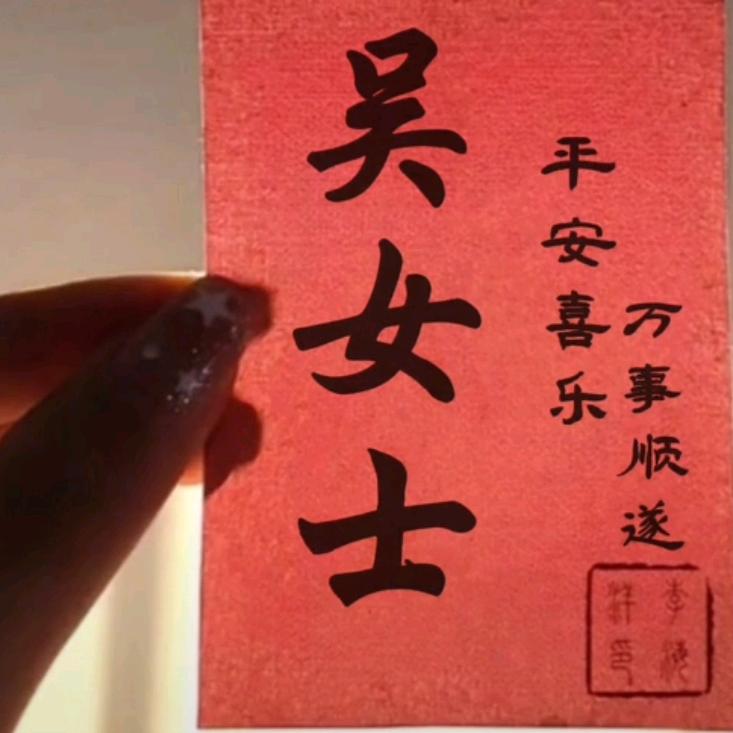 吴女士
平安喜乐
万事顺遂